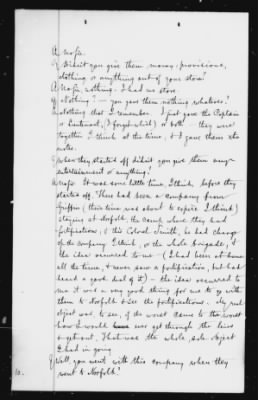 A No sir.
Q Didn't you give them money, provisions,
clothing or anything out of your store?
A No sir, nothing. I had no store.
Q Nothing? — you gave them nothing whatever?
A Nothing that I remember. I just gave the Captain
or Lieutenant, (I forget which) or both — they were
together I think at the time, & I gave them the
notes.
Q When they started off didn't you give them any
entertainment or anything?
A No sir. It was some little time, I think, before they
started off. There had been a company from
Griffin, (their time was about to expire I think)
staying at Norfolk, the camp where they had
fortifications, & this Colonel Smith, he had charge
of the company I think, or the whole brigade, &
the idea occurred to me — (I had been at home
all the time, & never saw a fortification, but had
heard a good deal of it) — the idea occurred to
me it was a very good thing for me to go with
them to Norfolk & see the fortifications. My real
object was to see, if the worst came to the worst
how I would ever get through the lines
& get out. That was the whole, sole object
I had in going.
Q Well you went with this company when they
went to Norfolk?
10.